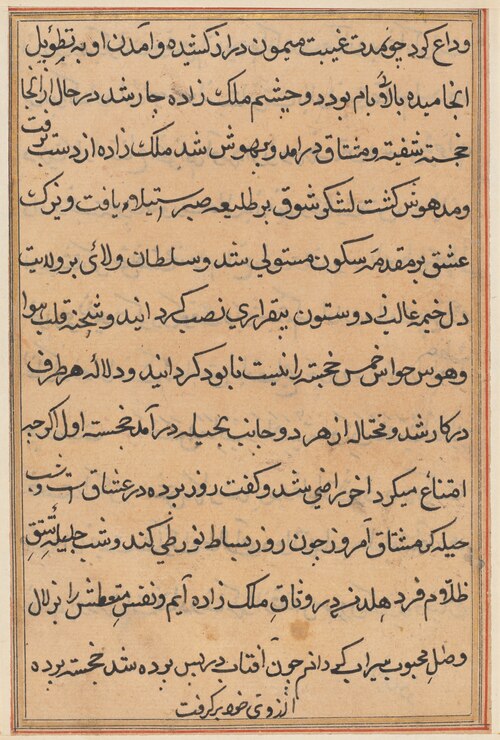 وداع کرد چو مدت غیبت میمون دراز کشیده و آمدن او به تطویل
انجامیده بالاء بام بود دو چشم ملک زاده چار شد در حال از انجا
خجسته شفیته و مشتاق درامد و بیهوش شد ملک زاده از دست برفت
و مدهوش کشت لشکر شوق بر طلیعه صبر استیلاء یافت و یزک
عشق بر مقدمه سکون مستولی شد و سلطان ولائی بر ولایت
دل خیمه غالبی زد و ستون بیقراری نصب کردانید و شحنه قلب هوا
و هوس حواس خمس خجسته را نیست نابود کردانید و دلاله هر طرف
در کار شد و محتاله از هر دو جانب بحیله درآمد خجسته اول اکرچه
امتناع میکرد اخر راضی شد و کفت روز برده در عشاق است و شب
حیله کر مشتاق آمروز چون روز بساط نور طی کند و شب جلیله تتق
ظلام فرو هلد من در وثاق ملک زاده آیم و نفس متعطش را بزلال
وصل محبوب سیراب کردانم چون آفتاب در پس برده شد خجسته برده
از روی خود بر کرفت